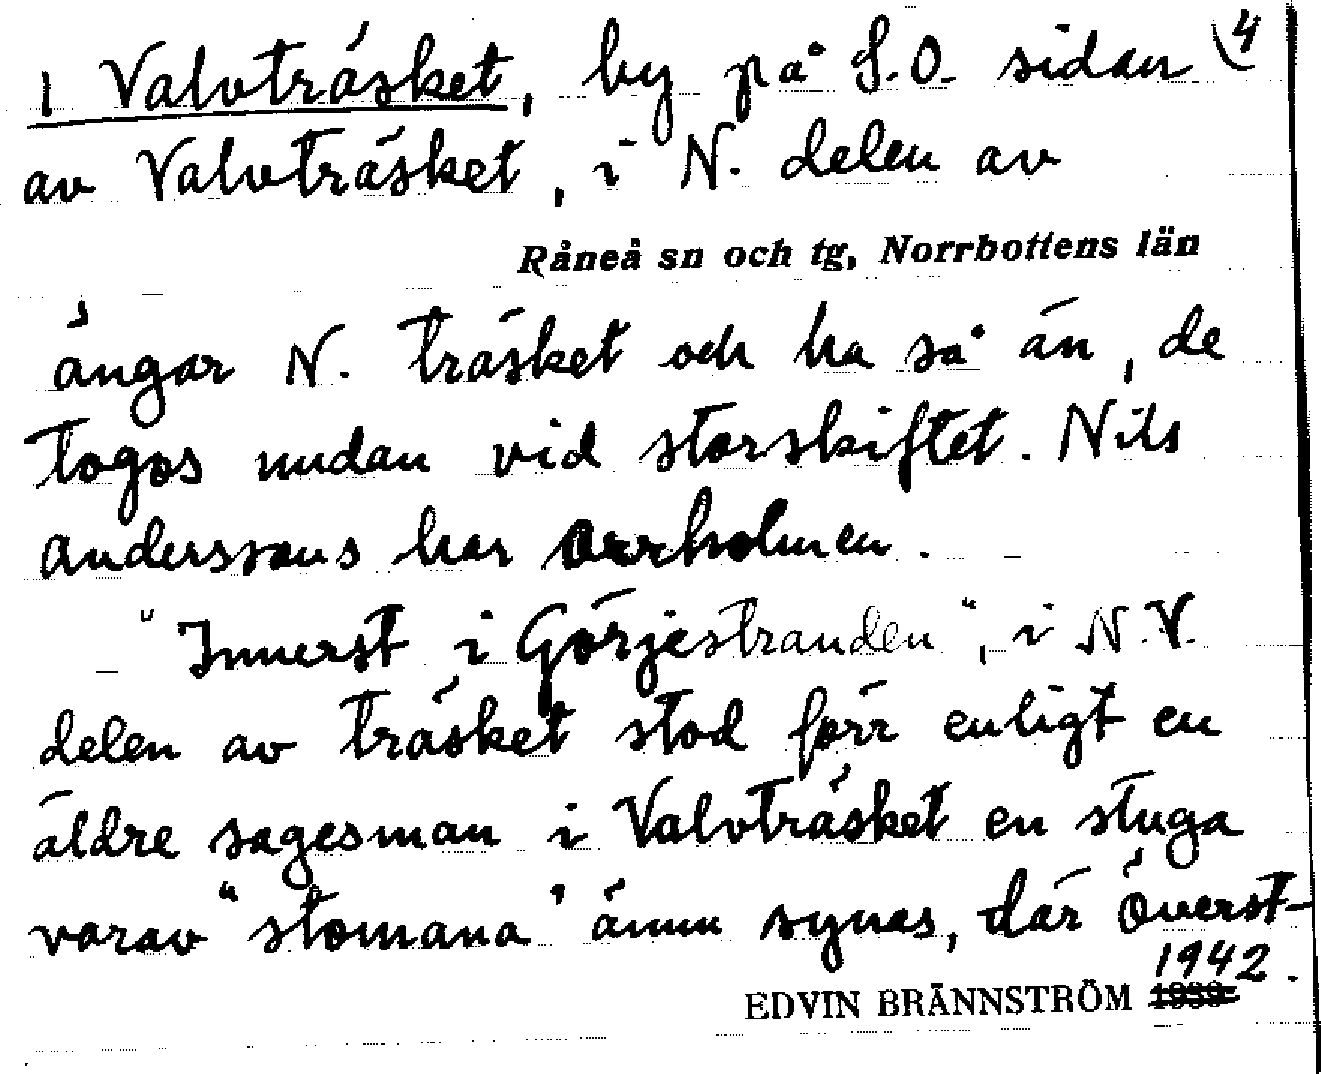 1 Valvträsket, by på S.O. sidan 4
av Valvträsket, i N. delen av
Råneå sn och tg, Norrbottens län
ängar N. träsket och ha så än, de
togos undan vid storskiftet. Nils
Anderssons har Orrholmen.
"Innerst i Görjestranden", i N.V.
delen av träsket stod förr enligt en
äldre sagesman i Valvträsket en stuga
varav "stomana" ännu synas, där överst-
EDVIN BRÄNNSTRÖM 1939 1942.